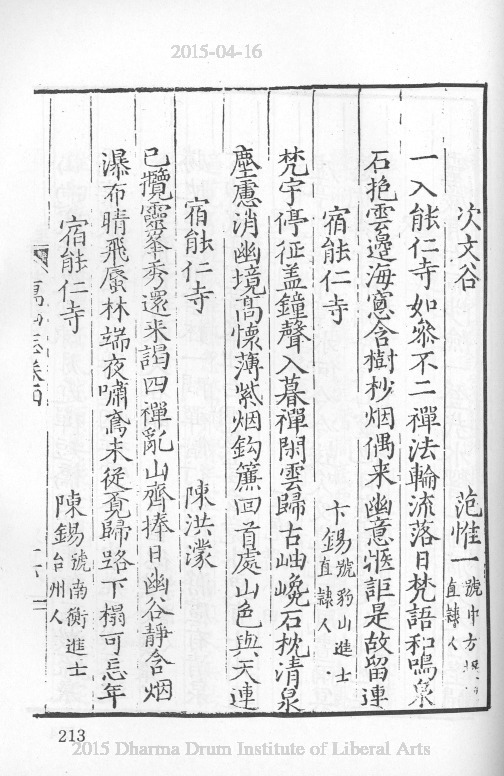 2015-04-16
次文谷 范惟一 號中方 直隸人
一入能仁寺如參不二禪法輪流落日梵語和鳴泉
石抱雲邊海窻含樹杪烟偶来幽意愜詎是故留連
宿能仁寺 卞錫 號豹山進士 直隸人
梵宇停征盖鐘聲入暮禪閑雲歸古岫巉石枕清泉
塵慮消幽境高懷薄紫烟鈎簾回首處山色與天連
宿能仁寺 陳洪濛
已攬靈峯秀還来謁四禪亂山齊捧日幽谷靜含烟
瀑布晴飛蜃林端夜嘯鳶未從覔歸路下榻可忘年
宿能仁寺 陳錫 號南衡進士 台州人
鴈山志卷四
213
2015 Dharma Drum Institute of Liberal Arts